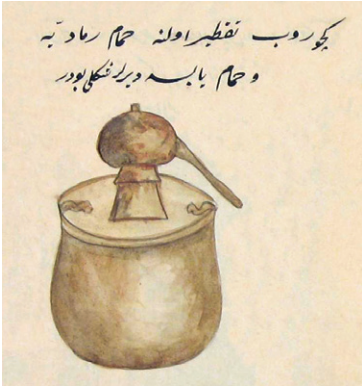 كچوروب تقطير اولنه حمام رماديه
و حمام يابسه ديرلر شكلى بودر